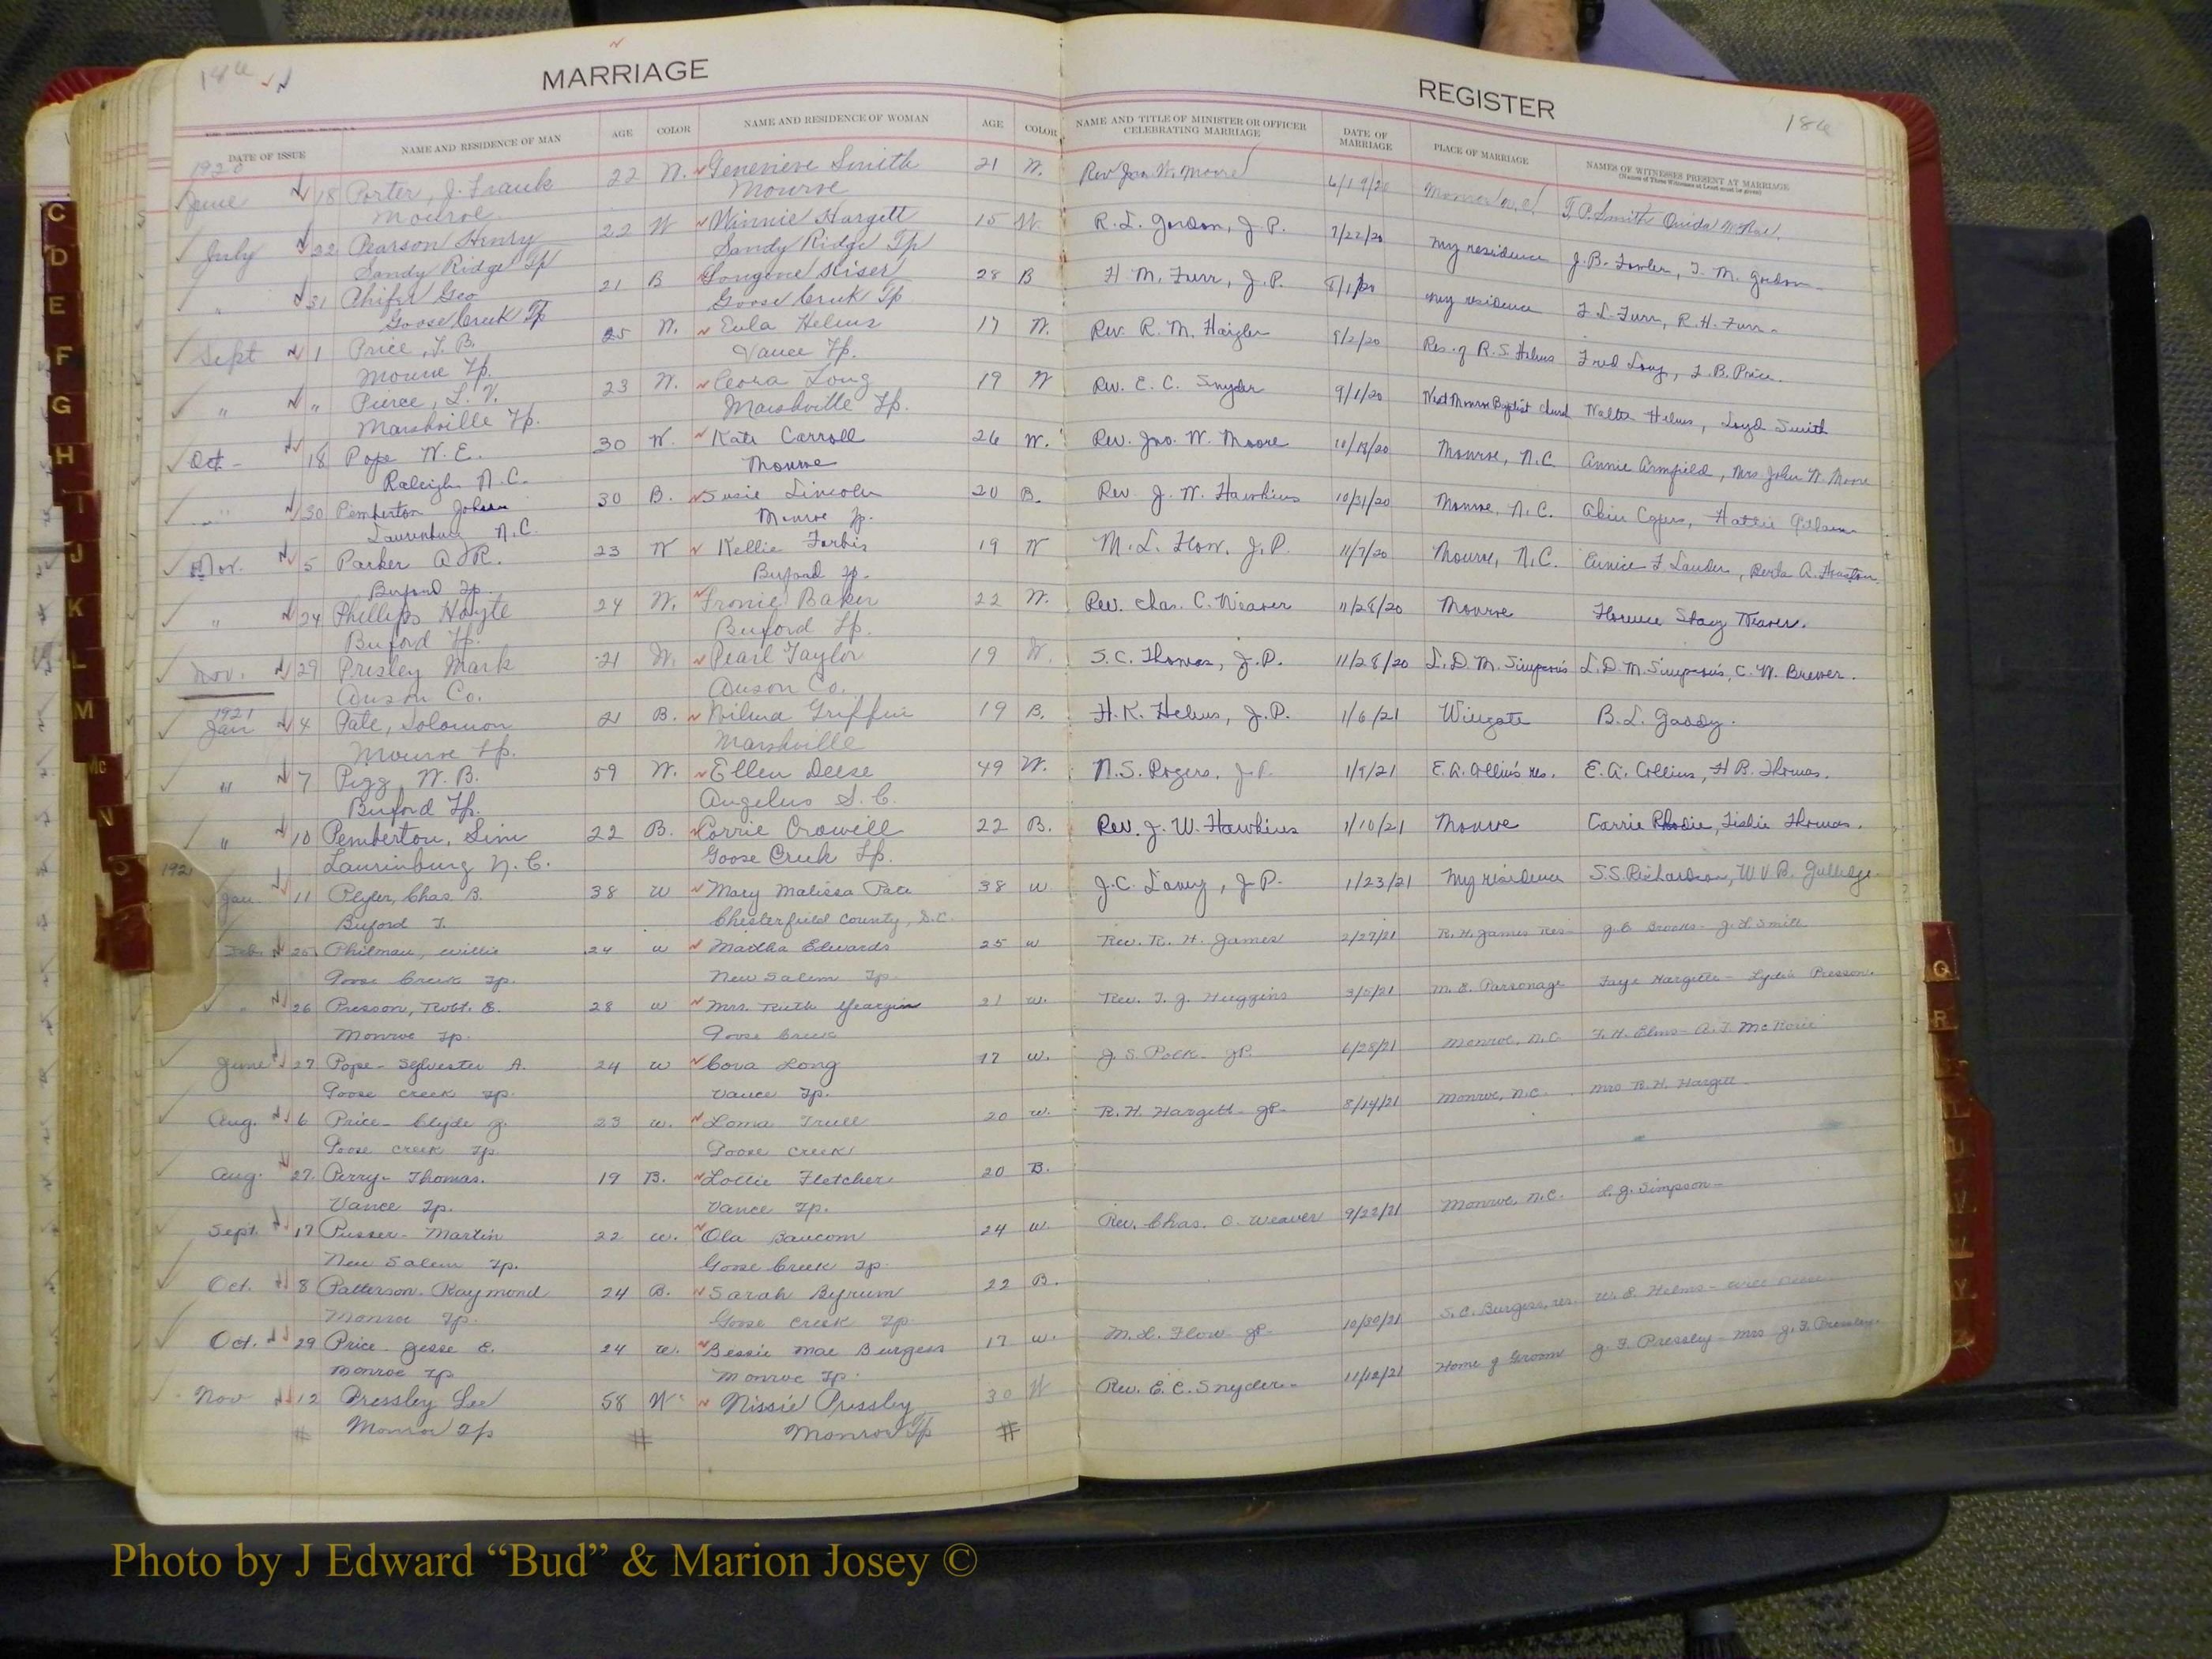 186
MARRIAGE
REGISTER
186
DATE OF ISSUE NAME AND RESIDENCE OF MAN AGE COLOR NAME AND RESIDENCE OF WOMAN AGE COLOR NAME AND TITLE OF MINISTER OR OFFICER CELEBRATING MARRIAGE DATE OF MARRIAGE PLACE OF MARRIAGE NAMES OF WITNESSES PRESENT AT MARRIAGE
(Names of Three Witnesses at Least must be given)
1920
June 18 Porter, J. Frank 22 W. Genevieve Smith 21 W. Rev Jno. W. Moore 6/19/20 Monroe N.C. T. P. Smith
Monroe Monroe
July 22 Pearson Henry 22 W Winnie Hargett 15 W. R. L. Gordon, J. P. 7/22/20 My residence J. B. Fowler, T. M. Gordon
Sandy Ridge Tp Sandy Ridge Tp
" 31 Geo 21 B Kiser 28 B H. M. Furr, J. P. 8/1/20 My residence F. L. Furr, R. H. Furr
Goose Creek Tp Goose Creek Tp
Sept 1 Price, J. B. 25 W. Eula Helms 17 W. Rev. R. M. Haigler 9/2/20 Res. of R. S. Helms Fred Long, L. B. Price.
Monroe Tp. Vance Tp.
" " Pierce, L. V. 23 W. Leora Long 19 W Rev. E. C. Snyder 9/1/20 West Monroe Baptist Church Walter Helms, Loyd Smith
Marshville Tp. Marshville Tp.
Oct - 18 Pope W. E. 30 W. Kate Carroll 26 W. Rev. Jno. W. Moore 10/18/20 Monroe, N.C. Annie Armfield, Mrs John W. Moore
Raleigh N.C. Monroe
" 30 Pemberton Johnson 30 B. Susie Lincoln 20 B. Rev. J. W. Hawkins 10/31/20 Monroe, N.C. Hattie
Laurinburg N.C. Monroe Tp.
Nov. 5 Parker A R. 23 W Kellie Forbis 19 W M. L. Flow, J. P. 11/7/20 Monroe, N.C. Eunice F. Lander, Berta A. Houston
Buford Tp. Buford Tp.
" 24 Phillips Hoyte 24 W. Fronie Baker 22 W. Rev. Chas. C. Weaver 11/28/20 Monroe Florence Stacy Weaver.
Buford Tp. Buford Tp.
Nov. 29 Presley Mark 21 W. Pearl Taylor 19 W. S. C. Thomas, J. P. 11/28/20 L. D. M. Simpson's L. D. M. Simpson's, C. W. Brewer.
Anson Co. Anson Co.
1921
Jan 4 Pate, Solomon 21 B. Wilma Griffin 19 B. H. K. Helms, J. P. 1/6/21 Wingate B. L. Gaddy.
Monroe Tp. Marshville
" 7 Pigg W. B. 59 W. Ellen Deese 49 W. N. S. Rogers, J. P. 1/9/21 E. A. Collins' res. E. A. Collins, H B. Thomas.
Buford Tp. Angelus S. C.
" 10 Pemberton, Sim 22 B. Corrie Crowell 22 B. Rev. J. W. Hawkins 1/10/21 Monroe Carrie Rhodie, Lishie Thomas.
Laurinburg N. C. Goose Creek Tp.
192
Jan. 11 Plyler, Chas B. 38 W Mary Malissa Pace 38 W J. C. Laney, J. P. 1/23/21 My residence S. S. Richardson, W V B. Gulledge
Buford T. Chesterfield County, S.C.
Feb 25 Philmon, Willie 24 W Martha Edwards 25 W Rev. R. H. James 2/27/21 R. H. James Res J. C Brooks - J. L Smith
Goose Creek Tp. New Salem Tp.
" 26 Presson, Robt. E. 28 W Mrs. Ruth Yeargin 21 W. Rev. T. J. Huggins 3/5/21 M. E. Parsonage Faye Hargette - Lydia Presson.
Monroe Tp. Goose Creek
June 27 Pope - Sylvester A. 24 W Cora Long 17 W. J. S. Polk - JP. 6/28/21 Monroe, N.C. T. H. Elms - A. J. McRorie
Goose Creek Tp. Vance Tp.
Aug. 6 Price - Clyde J. 23 W. Loma Trull 20 W. R. H. Hargett JP- 8/14/21 Monroe, N.C. Mrs R. H. Hargett
Goose Creek Tp. Goose Creek
Aug. 27. Perry - Thomas. 19 B. Lottie Fletcher 20 B.
Vance Tp. Vance Tp.
Sept. 17 Pusser - Martin 22 W. Ola Baucom 24 W Rev. Chas. C. Weaver 9/22/21 Monroe, N.C. L. J. Simpson -
New Salem Tp. Goose Creek Tp.
Oct. 8 Patterson - Raymond 24 B. Sarah Byrum 22 B.
Monroe Tp. Goose Creek Tp.
Oct. 29 Price - Jesse E. 24 W. Bessie Mae Burgess 17 W. M. L. Flow JP- 10/30/21 S. C. Burgess, res. W. E. Helms - Will
Monroe Tp Monroe Tp.
Nov 12 Pressley Lee 58 W Nissie Pressley 30 W Rev. E. C. Snyder - 11/12/21 Home of Groom J. F. Pressley - Mrs J. F. Pressley
# Monroe Tp # Monroe Tp #
C
D
E
F
G
H
I
J
K
L
M
Mc
N
O
Q
R
U
V
Y
Z
Photo by J Edward “Bud” & Marion Josey ©